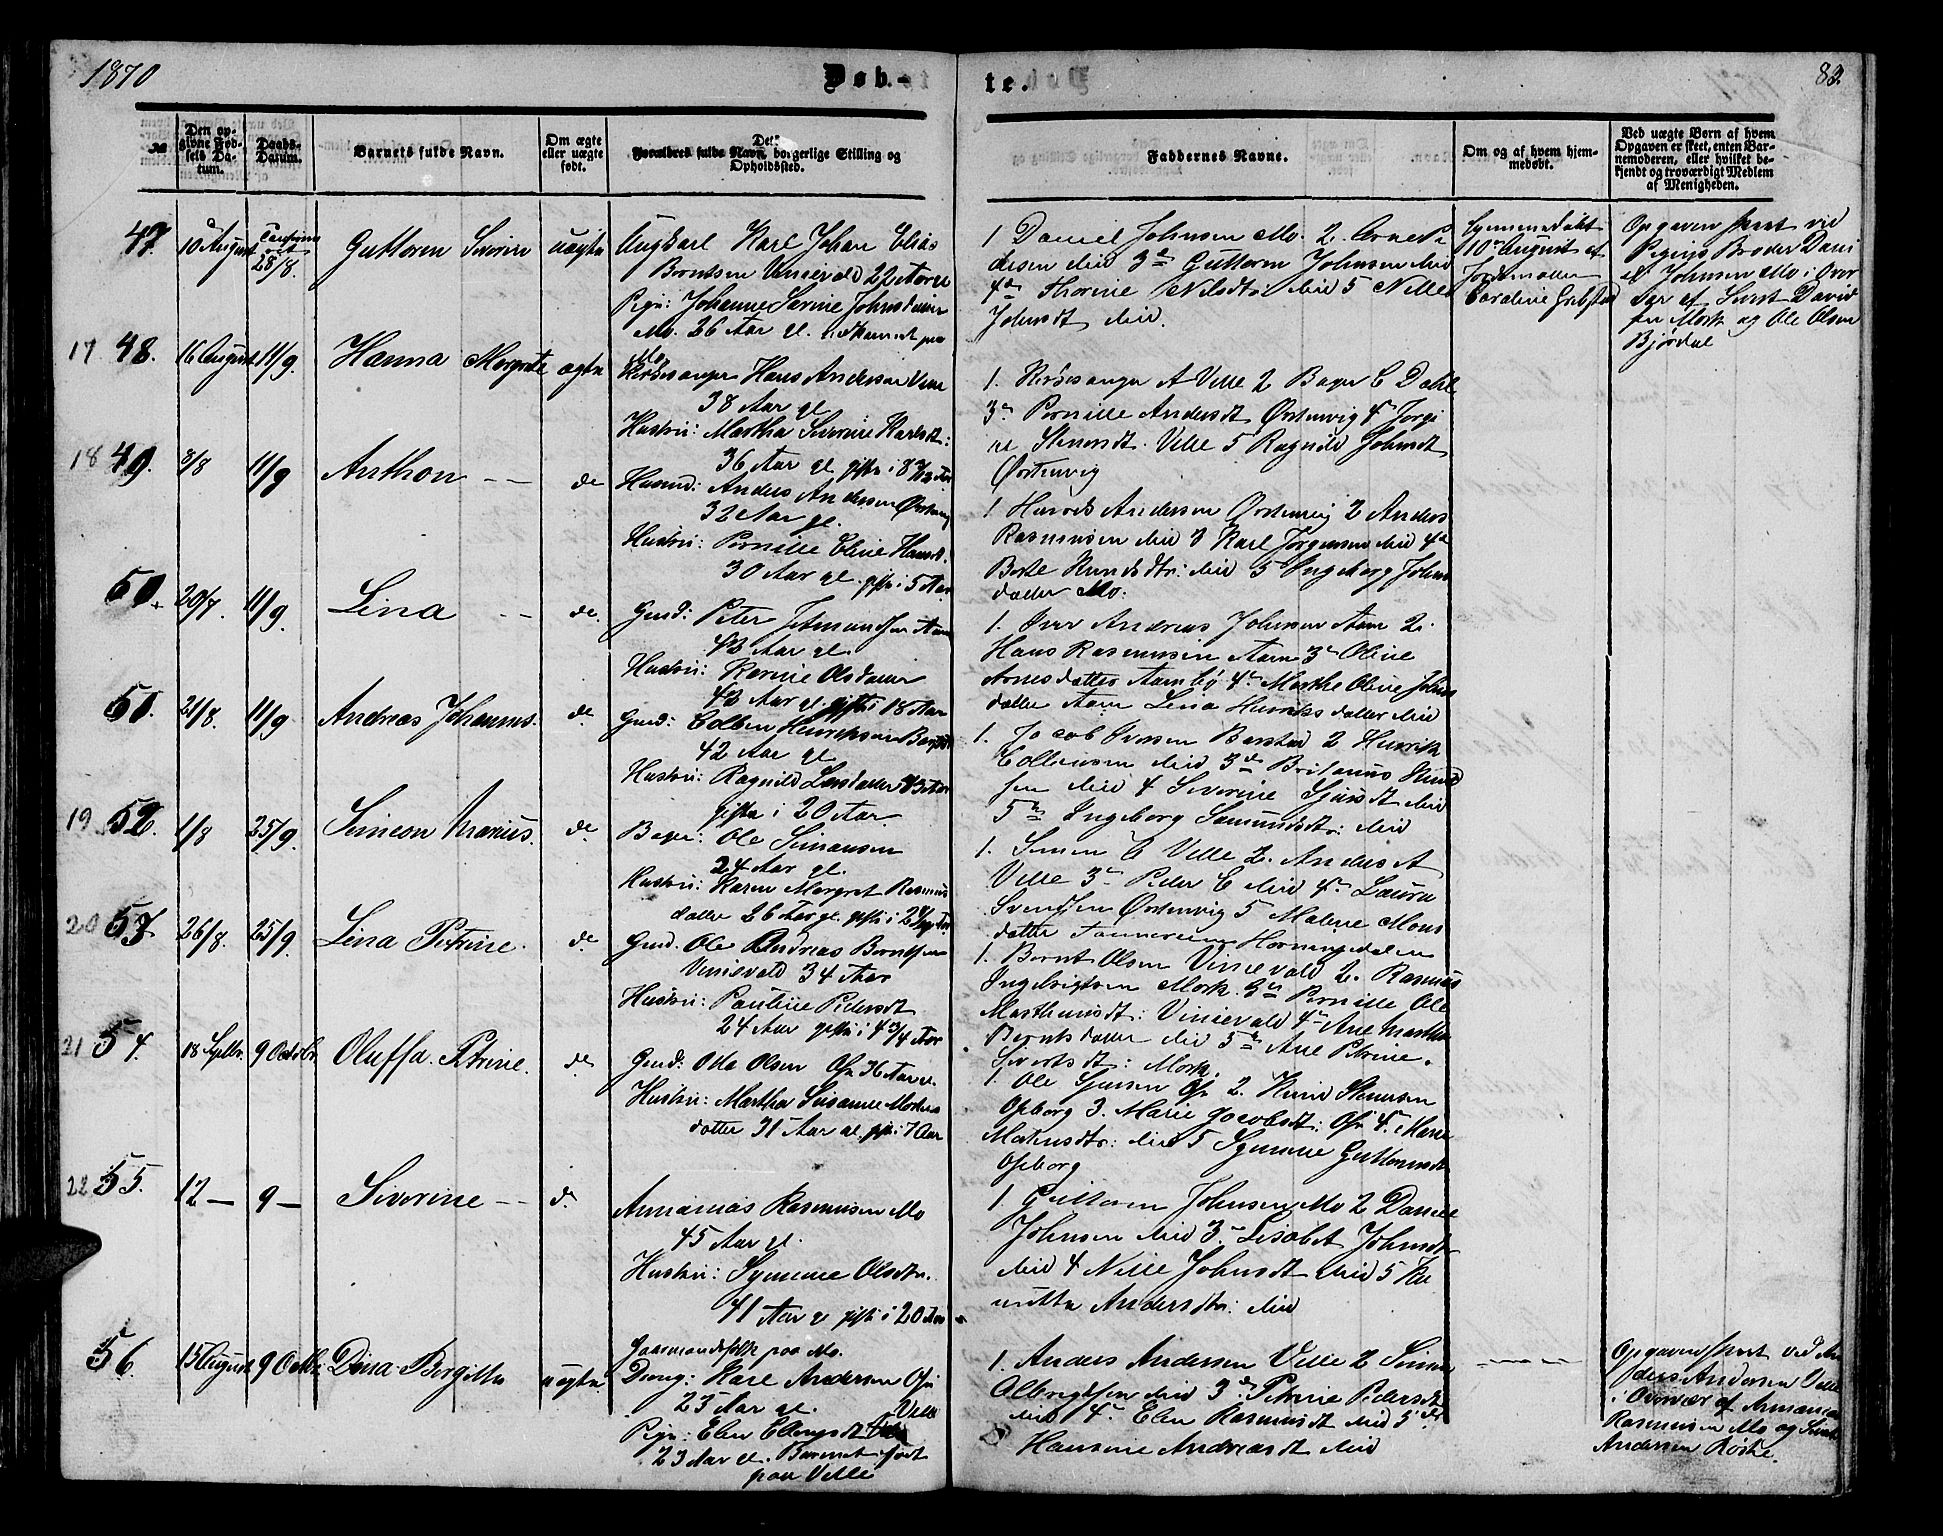 1870
Døb-
te.
82.
No
Den op-
givne Fød-
sels Da-
tum.
Daabs-
Datum.
Barnets fulde Navn.
Om ægte
eller uægte
født.
Forældres fulde Navn, borgerlige Stilling og
Opholdssted.
Faddernes Navne.
Om og af hvem hjem-
medøbt.
Ved uægte Børn af hvem
Opgaven er skeet, enten Bar-
nemoderen, eller hvilket be-
kjendt og troværdigt Medlem
af Menigheden.
47. 10 August 28/8. Guttorm Severin uægte
Ungkarl Karl Johan Elias
Berntsen Vinjevold 22 Aar gl
Pige: Johanne Serine Johnsdatter
Mo. 26 Aar gl. paa
Mo
1 Daniel Johnsen Mo. 2. Arne Pe
dersen ibid 3 Guttorm Johnsen ibid
4 Thorine Nilsdtr: ibid 5 Nille
Johnsdt ibid.
Hjemmedøbt
10 August af
Jordmoder
Caroline Grebstad
Opgaven skeet ved
Pigens Broder Dani
el Johnsen Mo i Over
vær af Sivert David
sen Mork og Ole Olsen
Bjørdal
17 48. 16 August 11/9. Hanna Margrete ægte
Kirkesanger Hans Andersen Velle
38 Aar gl.
Hustru: Martha Severine Karlsdt:
36 Aar gl. gifte i 8 Aar
1. Kirkesanger A Velle 2 Bager C Dahl
3 Pernille Andersdt Ørstenvig 4 Jørgi
ne Stenersdt. Velle 5 Ragnild Johnsdt
Ørstenvig
18 49. 8/8 11/9 Anthon - - do
Huusmd: Anders Andersen Ørstenvig
32 Aar gl.
Hustru: Pernille Eline Hansdt.
30 Aar gl. gifte i 5 Aar
1 Andersen Ørstenvig 2 Anders
Rasmussen ibid 3 Karl Jørgensen ibid 4
Berte Knudsdtr: ibid 5 Ingeborg Johns
datter Mo.
50. 20/7. 11/9. Lina - - do.
Gmd: Peter Aam
43 Aar gl.
Hustru: Karine Olsdatter
43 Aar gl. gifte i 18 Aar
1. Iver Andreas Johnsen Aam 2.
Hans Rasmussen Aam 3 Oline
Arnesdatter 4 Marthe Oline Johns
datter Aam Lina Henriksdatter ibid
51. 21/8. 11/9 Andreas Johannes. do
Gmd: Colben Henriksen Barstad
42 Aar gl
Hustru: Ragnild Larsdatter 43 Aar
gifte i 20 Aar.
1. Jacob Iversen Barstad 2 Henrik
Colbensen ibid 3
sen ibid 4 Severine ibid
5 Ingeborg Samundsdtr: ibid
19 52. 1/8 25/9. Simeon Marius. do
Bager: Ole Simonsen
24 Aar gl.
Hustru: Karen Margret Rasmus
datter 26 Aar gl. gifte i 2
1. Simen C Velle 2. Anders A
Velle 3 Peder C ibid 4 Laura
Svendsen Ørstenvig 5 Malene Mons
datter Horningdalen
20 53 26/8. 25/9. Lina Petrine. do
Gmd. Ole Andreas Berntsen
Vinjevold 34 Aar
Hustru: Pauline Pedersdt
24 Aar gifte i 4 3/4 Aar
1. Bernt Olsen Vinjevold 2. Rasmus
Ingebrigtsen Mork. 3 Pernille Ole
Marthinusdt: Vinjevold 4 Ane Marthe
Berntsdatter ibid 5 Ane Petrine
Sivertsdt: Mork.
21 54. 18 Septbr. 9 Octobr. Oluffa Petrine. do
Gmd: Ole Olsen Ose 36 Aar gl.
Hustru: Martha Susanne Mathias
datter 31 Aar gl gifte i 7 Aar
1. Ole 2. Knud Stenersen
Osborg 3. Marie Jacobsdt: 4.
Mathisdtr: ibid 5 Synnove Guttormsdt
Osborg
22 55. 12 — 9 — Siverine - - do.
Annanias Rasmussen Mo
45 Aar gl.
Hustru: Synnove Olsdtr.
41 Aar gl gifte i 20 Aar
Gaarmandsfolk paa Mo.
1 Guttorm Johnsen Mo 2 Daniel
Johnsen ibid 3. Lisabet Johnsdt
ibid 4 Nille Johnsdt ibid 5 Ka
Andersdtr: ibid
56. 15 August 9 Octbr. Dina Bergitte uægte
Dreng: Karl Andersen
23 Aar gl. Velle
Pige: Elen Ellingsdt
23 Aar gl. Barnet født
paa Velle
1. Anders Andersen Velle 2 Simen
Olbrigtsen ibid 3 Petrine Pedersdt
ibid 4 Elen Rasmusdt ibid 5
Hansine Andreasdt ibid
Opgaven skeet ved An
ders Andersen Velle
i Overvær af Annanias
Rasmussen Mo og
Andersen Røske.